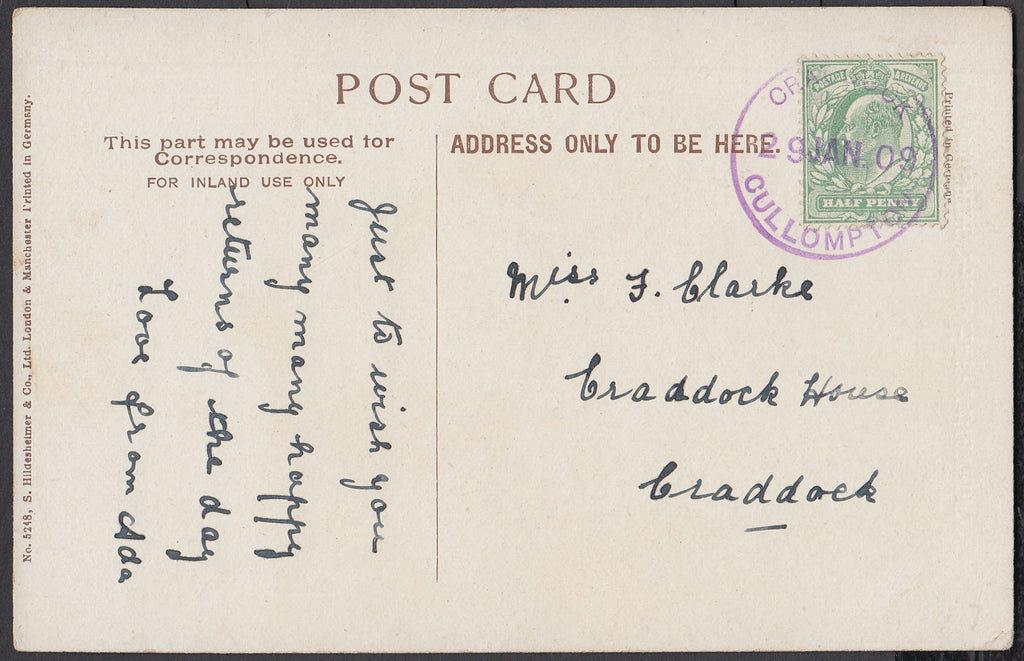 POST CARD
This part may be used for
Correspondence.
FOR INLAND USE ONLY
ADDRESS ONLY TO BE HERE.
Just to wish you
many many happy
returns of the day
Love from Ada
Miss F. Clarke
Craddock House
Craddock
CRADDOCK
29 JAN. 09
CULLOMPTON
POSTAGE & REVENUE
HALF PENNY
Printed in Germany.
No. 5248, S. Hildesheimer & Co., Ltd. London & Manchester Printed in Germany.